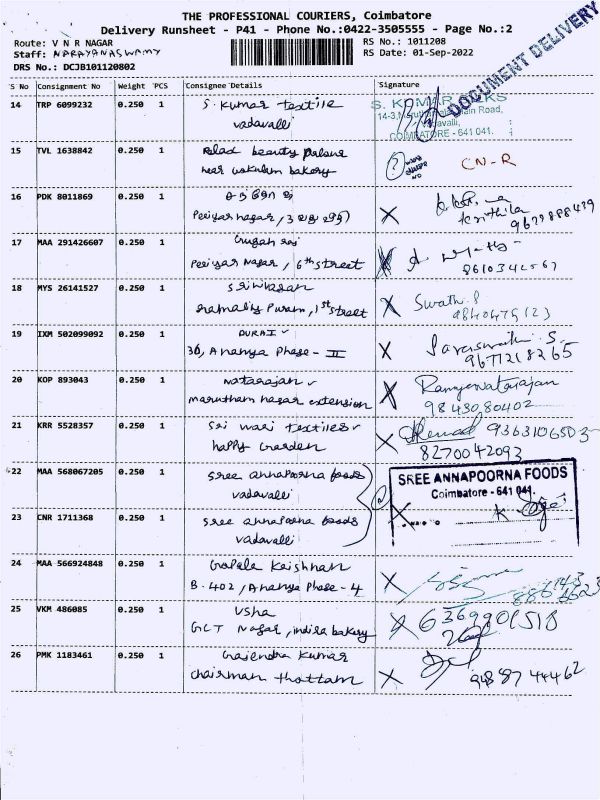 THE PROFESSIONAL COURIERS, Coimbatore
Delivery Runsheet - P41 - Phone No.:0422-3505555 - Page No.:2
Route: V N R NAGAR
RS No.: 1011208
Staff: NARAYANASWAMY
RS Date: 01-Sep-2022
DRS No.: DCJB101120802
DOCUMENT DELIVERY
S No Consignment No Weight PCS Consignee Details Signature
14 TRP 6099232 0.250 1 S. Kumar textile
vadavalli
S. KUMAR
Main Road,
COIMBATORE - 641 041.
15 TVL 1638842 0.250 1 beauty
near bakery
CN-R
16 PDK 8011869 0.250 1
Periyar nagar, 3
9629888429
17 MAA 291426607 0.250 1 raj
Periyar Nagar, 6th street
8610342567
18 MYS 26141527 0.250 1 Srinivasan
Puram, 1st street
Swathi. P
19 IXM 502099092 0.250 1 DURAI
30, Ananya Phase - II
Saraswathi S.
20 KOP 893043 0.250 1 Natarajan
marutham nagar extension
Ramyenatarajan
9843080402
21 KRR 5528357 0.250 1 Sri mari textiles
happy Garden
9363106503
8270042093
22 MAA 568067205 0.250 1 Sree annapoorna foods
vadavalli
SREE ANNAPOORNA FOODS
Coimbatore - 641 041.
23 CNR 1711368 0.250 1 Sree annapoorna foods
vadavalli
24 MAA 566924848 0.250 1 Gopala Krishnan
B-402, Ananya Phase - 4
25 VKM 486085 0.250 1 Usha
GCT Nagar, indira bakery
6369901518
26 PMK 1183461 0.250 1 Gajendra Kumar
chairman thottam
9488744462